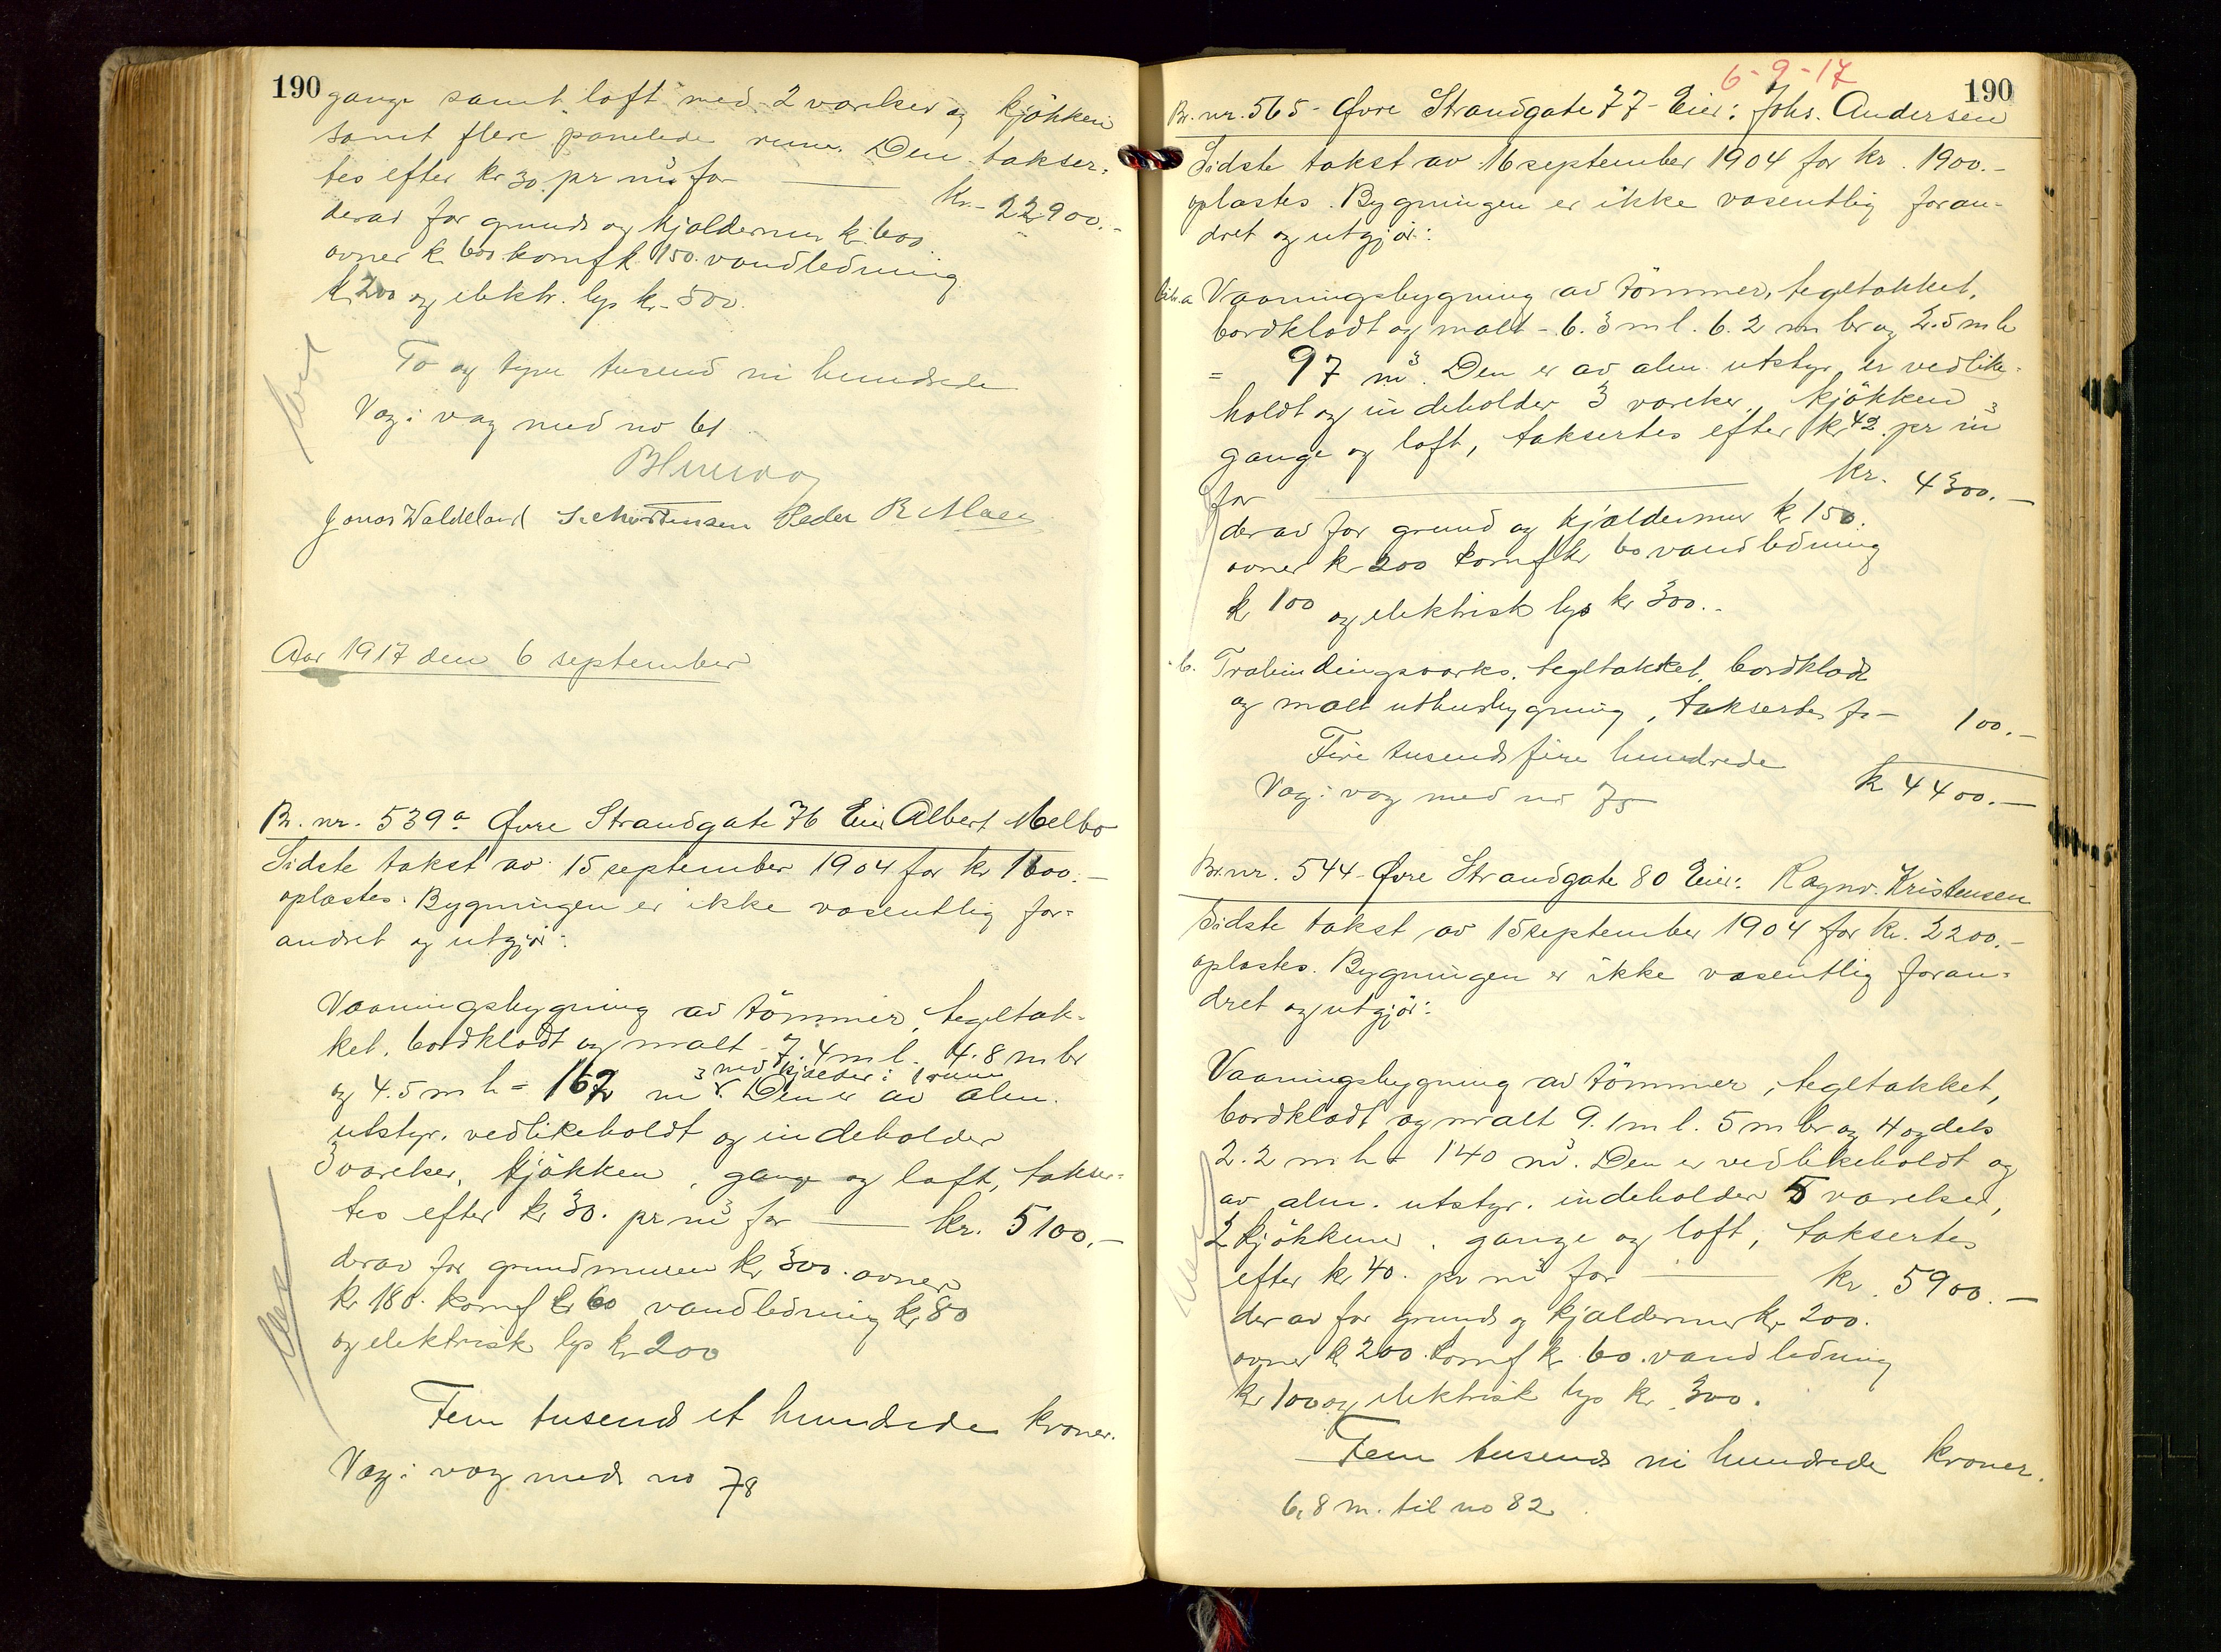 190
gange samt loft med 2 værelser og kjökken
samt flere panelede rum. Den takser-
tes efter kr 30. pr m³ for — kr. 22900.-
derav for grund og kjældermur kr. 600
ovner kr 600 komf kr 150. vandledning
kr 200 og elektr. lys kr. 500.
To og tyve tusend ni hundrede
Væg i væg med no 61.
Jonas Waldeland S. Mortensen Peder R
Aar 1917 den 6 september
Br. nr. 539a Øvre Strandgate 76 Eier Albert Melbo
Sidste takst av 15 september 1904 for kr 1600.-
oplæstes. Bygningen er ikke væsentlig for-
andret og utgjör:
Vaaningsbygning av tömmer, tegltæk-
ket, bordklædt og malt - 7.4 m l. 4.8 m br
med kjælder i 1 rum
og 4.5 m h = 162 m³. Den er av alm.
utstyr, vedlikeholdt og indeholder
3 værelser, kjökken, gang og loft, takser-
tes efter kr 30. pr m³ for — kr. 5100.-
derav for grundmuren kr 300. ovner
kr 180. komf kr 60 vandledning kr 80
og elektrisk lys kr 200
Fem tusend et hundrede kroner.
Væg i væg med no 78
6-9-17
190
Br. nr. 565 - Øvre Strandgate 77 - Eier: Johs. Andersen
Sidste takst av 16 september 1904 for kr. 1900.-
oplæstes. Bygningen er ikke væsentlig foran-
dret og utgjör:
Litr. a. Vaaningsbygning av tömmer, tegltækket,
bordklædt og malt - 6.3 m l. 6.2 m br og 2.5 m h
= 97 m³. Den er av alm. utstyr, er vedlike-
holdt og indeholder 3 værelser, kjökken
gange og loft, taksertes efter kr 42. pr m³
for — kr. 4300.-
derav for grund og kjældermur kr 150.
ovner kr 200 komf kr 60 vandledning
kr 100 og elektrisk lys kr 300.-
- b. Træbindingsværks, tegltækket, bordklædt
og malt uthusbygning, taksertes for - 100.-
Fire tusend fire hundrede kr 4400.-
Væg i væg med no 75
Br. nr. 544 - Øvre Strandgate 80 Eier: Ragnv. Kristensen
Sidste takst av 15 september 1904 for kr. 2200.-
oplæstes. Bygningen er ikke væsentlig foran-
dret og utgjör:
Vaaningsbygning av tömmer, tegltækket,
bordklædt og malt 9.1 m l. 5 m br og 4 og dels
2.2 m h = 140 m³. Den er vedlikeholdt og
av alm. utstyr. indeholder 5 værelser,
2 kjökkener, gange og loft, taksertes
efter kr 40. pr m³ for — kr. 5900.-
derav for grund og kjældermur kr. 200.
ovner kr 200. komf kr 60. vandledning
kr 100 og elektrisk lys kr. 300.
Fem tusend ni hundrede kroner.
6,8 m. til no 82.